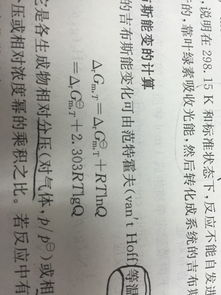 ,说明在 298.15 K 和标准状态下,反应不能自发进
的,靠叶绿素吸收光能,然后转化成系统的吉布斯
斯能变的计算
的吉布斯能变化可由范特霍夫(van't Hoff)等温
ΔᵣGₘ,T=ΔᵣG⊖ₘ,T+RTlnQ
=ΔᵣG⊖ₘ,T+2.303RTlgQ
它是各生成物相对分压(对气体,p/p⊖)或相
压或相对浓度幂的乘积之比。若反应中有